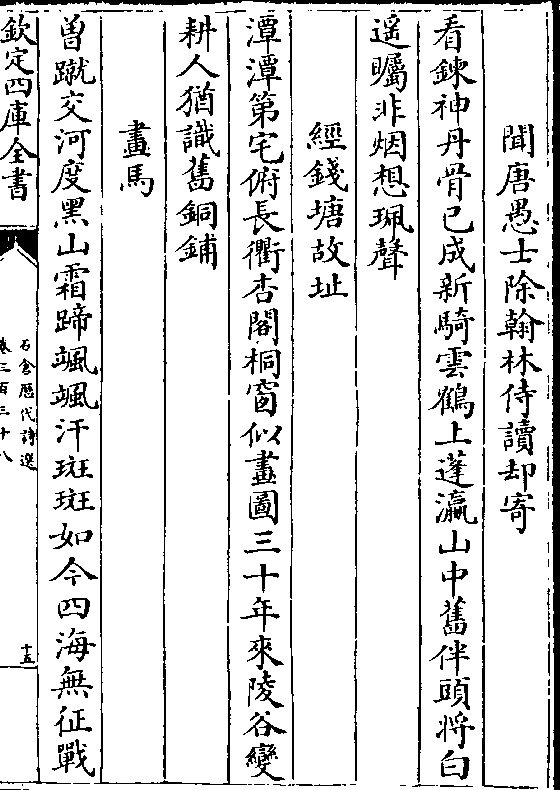 聞唐愚士除翰林侍讀却寄
看鍊神丹骨已成新騎雲鶴上蓬瀛山中舊伴頭將白
遥矚非烟想珮聲
經錢塘故址
潭潭第宅俯長衢杏閣桐窗似畫圖三十年來陵谷變
耕人猶識舊銅鋪
畫馬
曽蹴交河度黑山霜蹄颯颯汗斑斑如今四海無征戰
欽定四庫全書
石倉歷代詩選
卷三百三十八
十五